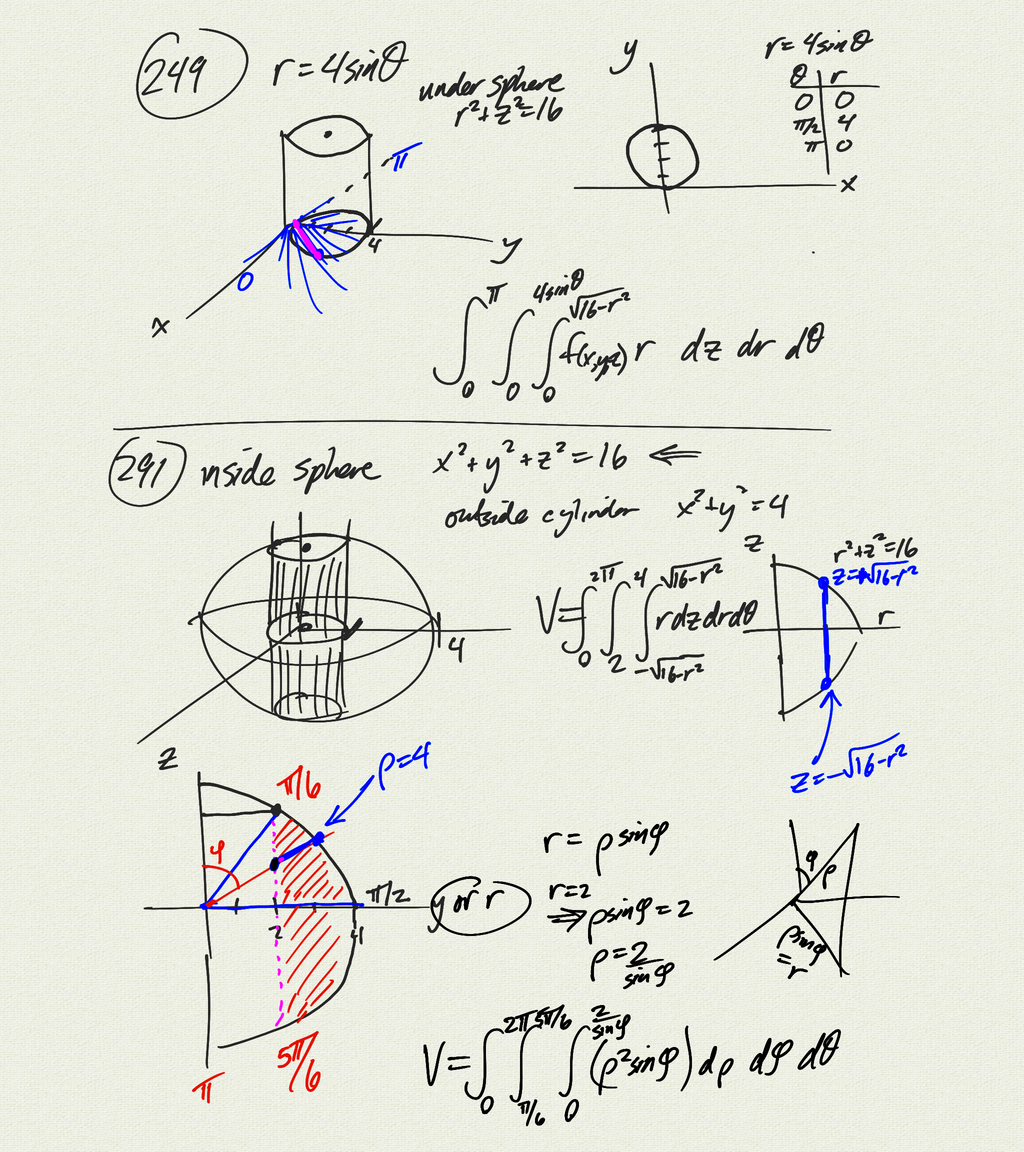 249
r = 4sinθ
under sphere
r² + z² = 16
π
4
y
0
x
y
x
r = 4sinθ
θ r
0 0
π/2 4
π 0
∫₀^π ∫₀^(4sinθ) ∫₀^(√(16-r²)) f(x,y,z) r dz dr dθ
291 inside sphere x² + y² + z² = 16 ⇐
outside cylinder x² + y² = 4
4
V = ∫₀^(2π) ∫₂^4 ∫_(-√(16-r²))^(√(16-r²)) r dz dr dθ
z
r² + z² = 16
z = √(16-r²)
r
z = -√(16-r²)
z
π/6
ρ = 4
φ
π/2
y or r
2
4
5π/6
π
r = ρ sinφ
r = 2
⇒ ρ sinφ = 2
ρ = 2/sinφ
φ
ρ
ρ sinφ
= r
V = ∫₀^(2π) ∫_(π/6)^(5π/6) ∫₀^(2/sinφ) (ρ² sinφ) dρ dφ dθ